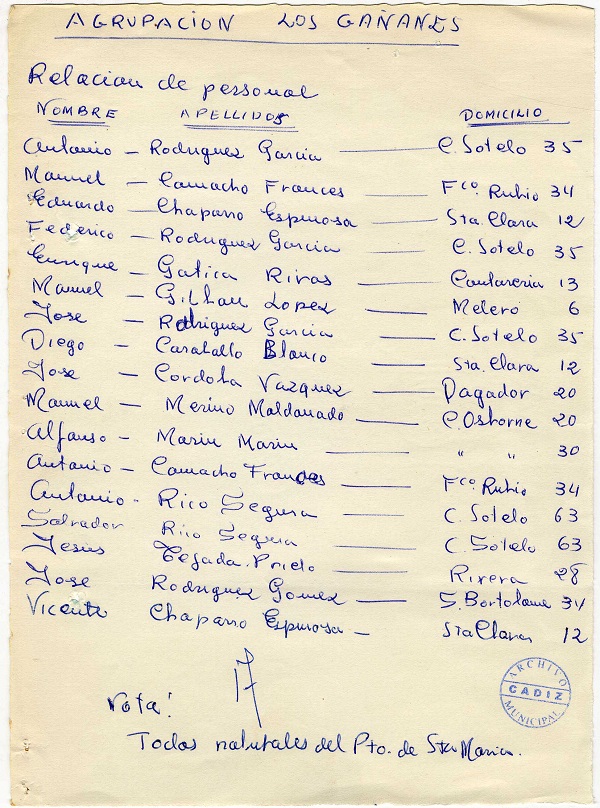 AGRUPACION LOS GAÑANES
Relacion de personal
NOMBRE APELLIDOS DOMICILIO
Antonio — Rodriguez Garcia — C. Sotelo 35
Manuel — Camacho Frances — Fco. Rubio 34
Eduardo — Chaparro Espinosa — Sta. Clara 12
Federico — Rodriguez Garcia — C. Sotelo 35
Enrique — Gatica Rivas — Cantareria 13
Manuel — Gilhau Lopez — Melero 6
Jose — Rodriguez Garcia — C. Sotelo 35
Diego — Caraballo Blanco — Sta. Clara 12
Jose — Cordoba Vazquez — Pagador 20
Manuel — Merino Maldonado — C. Osborne 20
Alfonso — Marin Marin — " " 30
Antonio — Camacho Frances — Fco. Rubio 34
Antonio - Rico Segura — C. Sotelo 63
Salvador Rico Segura — C. Sotelo 63
Jesus Tejada Prieto — Rivera 28
Jose Rodriguez Gomez — S. Bartolome 34
Vicente Chaparro Espinosa — Sta Clara 12
17
Nota!
Todos naturales del Pto. de Sta Maria.
ARCHIVO
CADIZ
MUNICIPAL